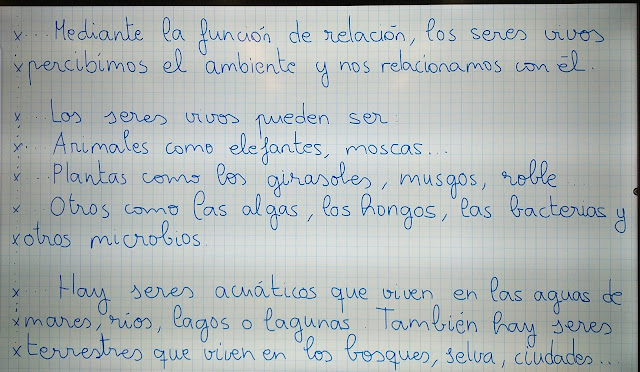 x... Mediante la función de relación, los seres vivos
x percibimos el ambiente y nos relacionamos con él.
x... Los seres vivos pueden ser:
x... Animales como elefantes, moscas...
x... Plantas como los girasoles, musgos, roble...
x... Otros como las algas, los hongos, las bacterias y
x otros microbios.
x... Hay seres acuáticos que viven en las aguas de
x mares, ríos, lagos o lagunas. También hay seres
x terrestres que viven en los bosques, selva, ciudades...